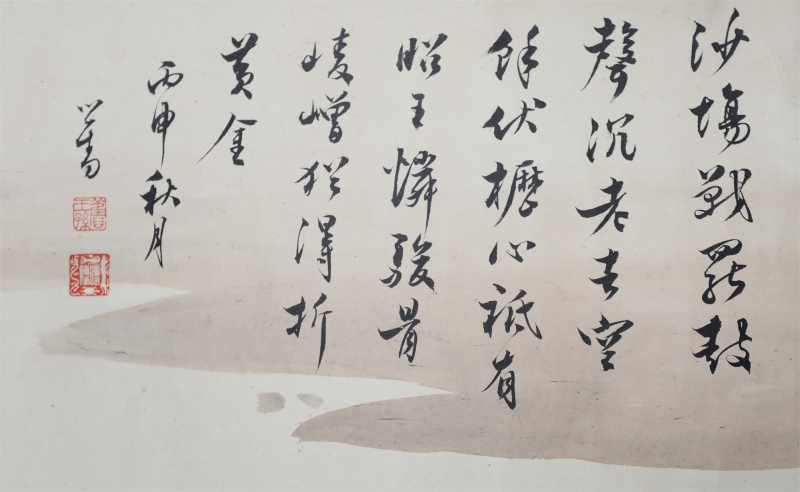 沙場戰罷鼓
聲沉老去空
餘伏櫪心祗有
昭王憐駿骨
崚嶒猶得折
黃金
丙申秋月
心畬